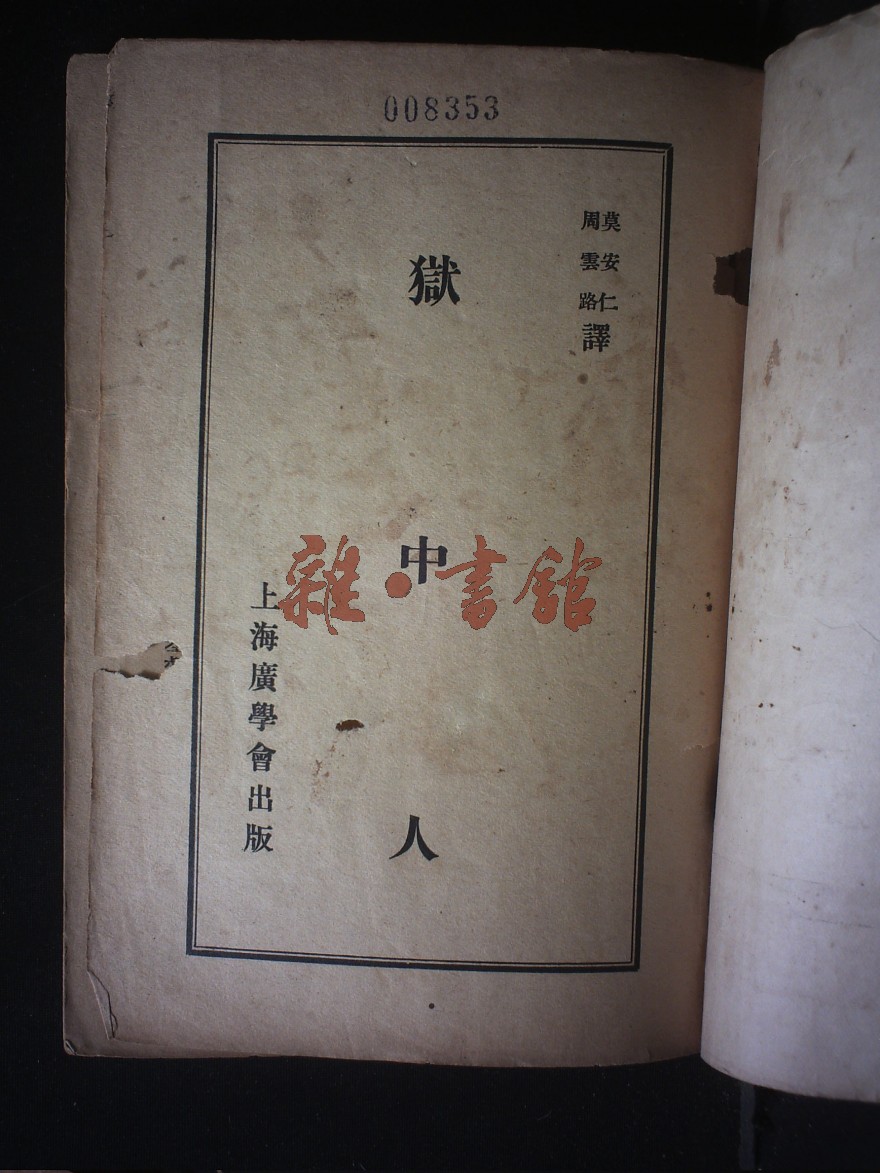 008353
莫安仁
周雲路
譯
獄中人
上海廣學會出版
雜·書館